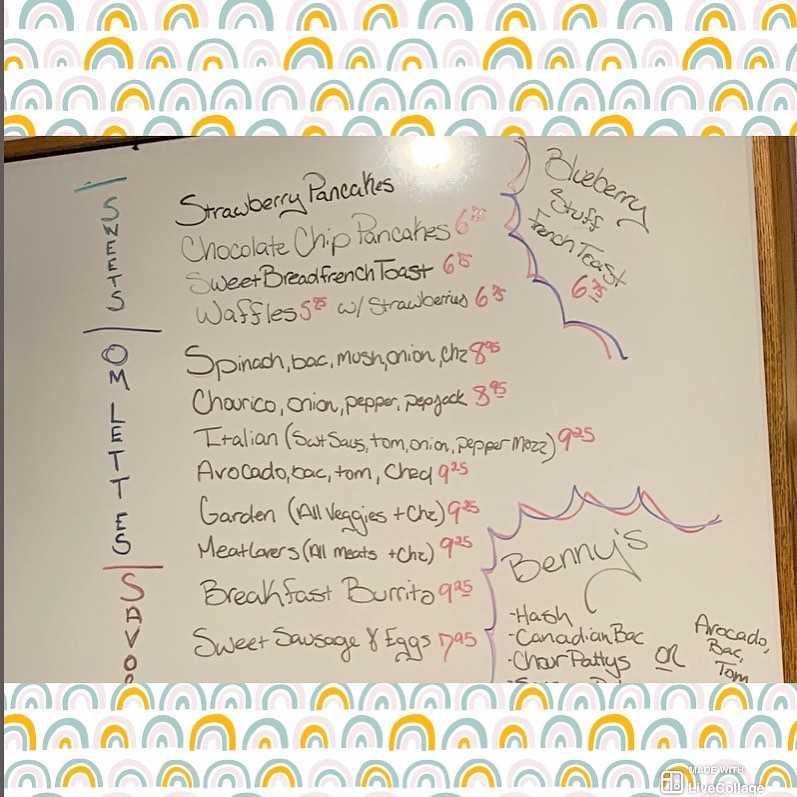 SWEETS
Strawberry Pancakes
Chocolate Chip Pancakes 6 75
Sweet Bread french Toast 6 75
Waffles 5 75 w/ Strawberries 6 75
Blueberry
Stuff
French Toast
6 75
OMLETTES
Spinach, bac, mush, onion, chz 8 95
Chourico, onion, pepper, pepjack 8 95
Italian (Swt Saus, tom, onion, pepper Mozz) 9 25
Avocado, bac, tom, Ched 9 25
Garden (All Veggies + Chz) 9 25
Meatlovers (All meats + Chz) 9 25
SAVO
Breakfast Burrito 9 25
Sweet Sausage & Eggs 7 95
Benny's
-Hash
-Canadian Bac
-Chour Pattys
OR
Avocado,
Bac,
Tom
MADE WITH
LiveCollage